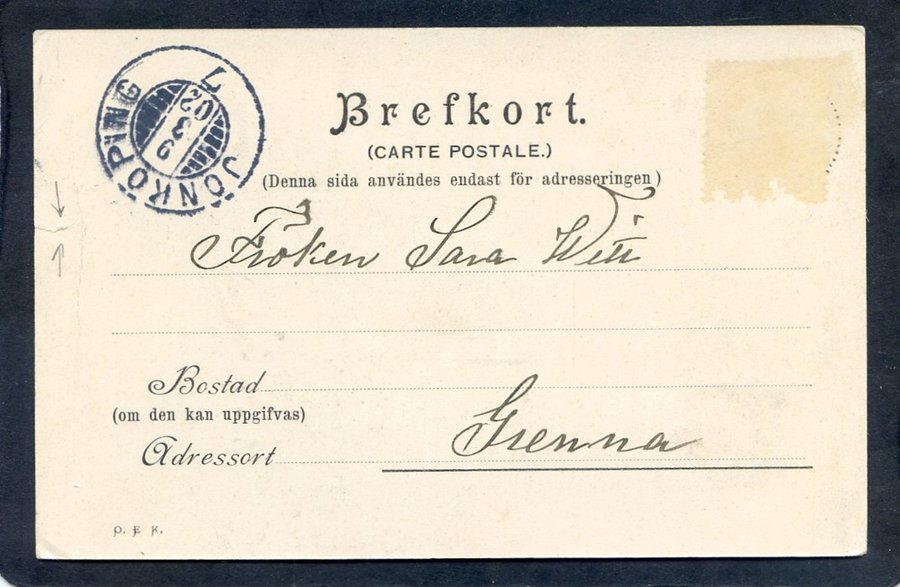 JÖNKÖPING
7
9 3 02
Brefkort.
(CARTE POSTALE.)
(Denna sida användes endast för adresseringen)
Fröken Sara Witt
Bostad
(om den kan uppgifvas)
Grenna
Adressort
O. E. K.